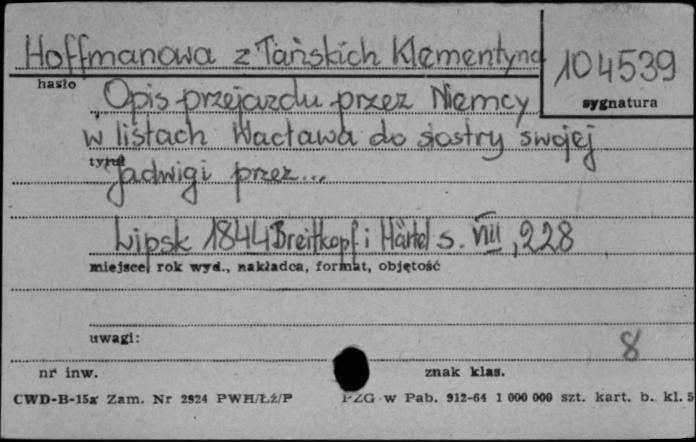 Hoffmanowa z Tańskich Klementyna
104539
hasło
sygnatura
Opis przejazdu przez Niemcy
w listach Wacława do siostry swojej
tytuł
Jadwigi przez...
Lipsk 1844 Breitkopf i Härtel s. VIII, 228
miejsce, rok wyd., nakładca, format, objętość
uwagi:
8
nr inw.
znak klas.
CWD-B-15a Zam. Nr 2924 PWH/Łż/P
PZG w Pab. 912-64 1 000 000 szt. kart. b. kl. 5